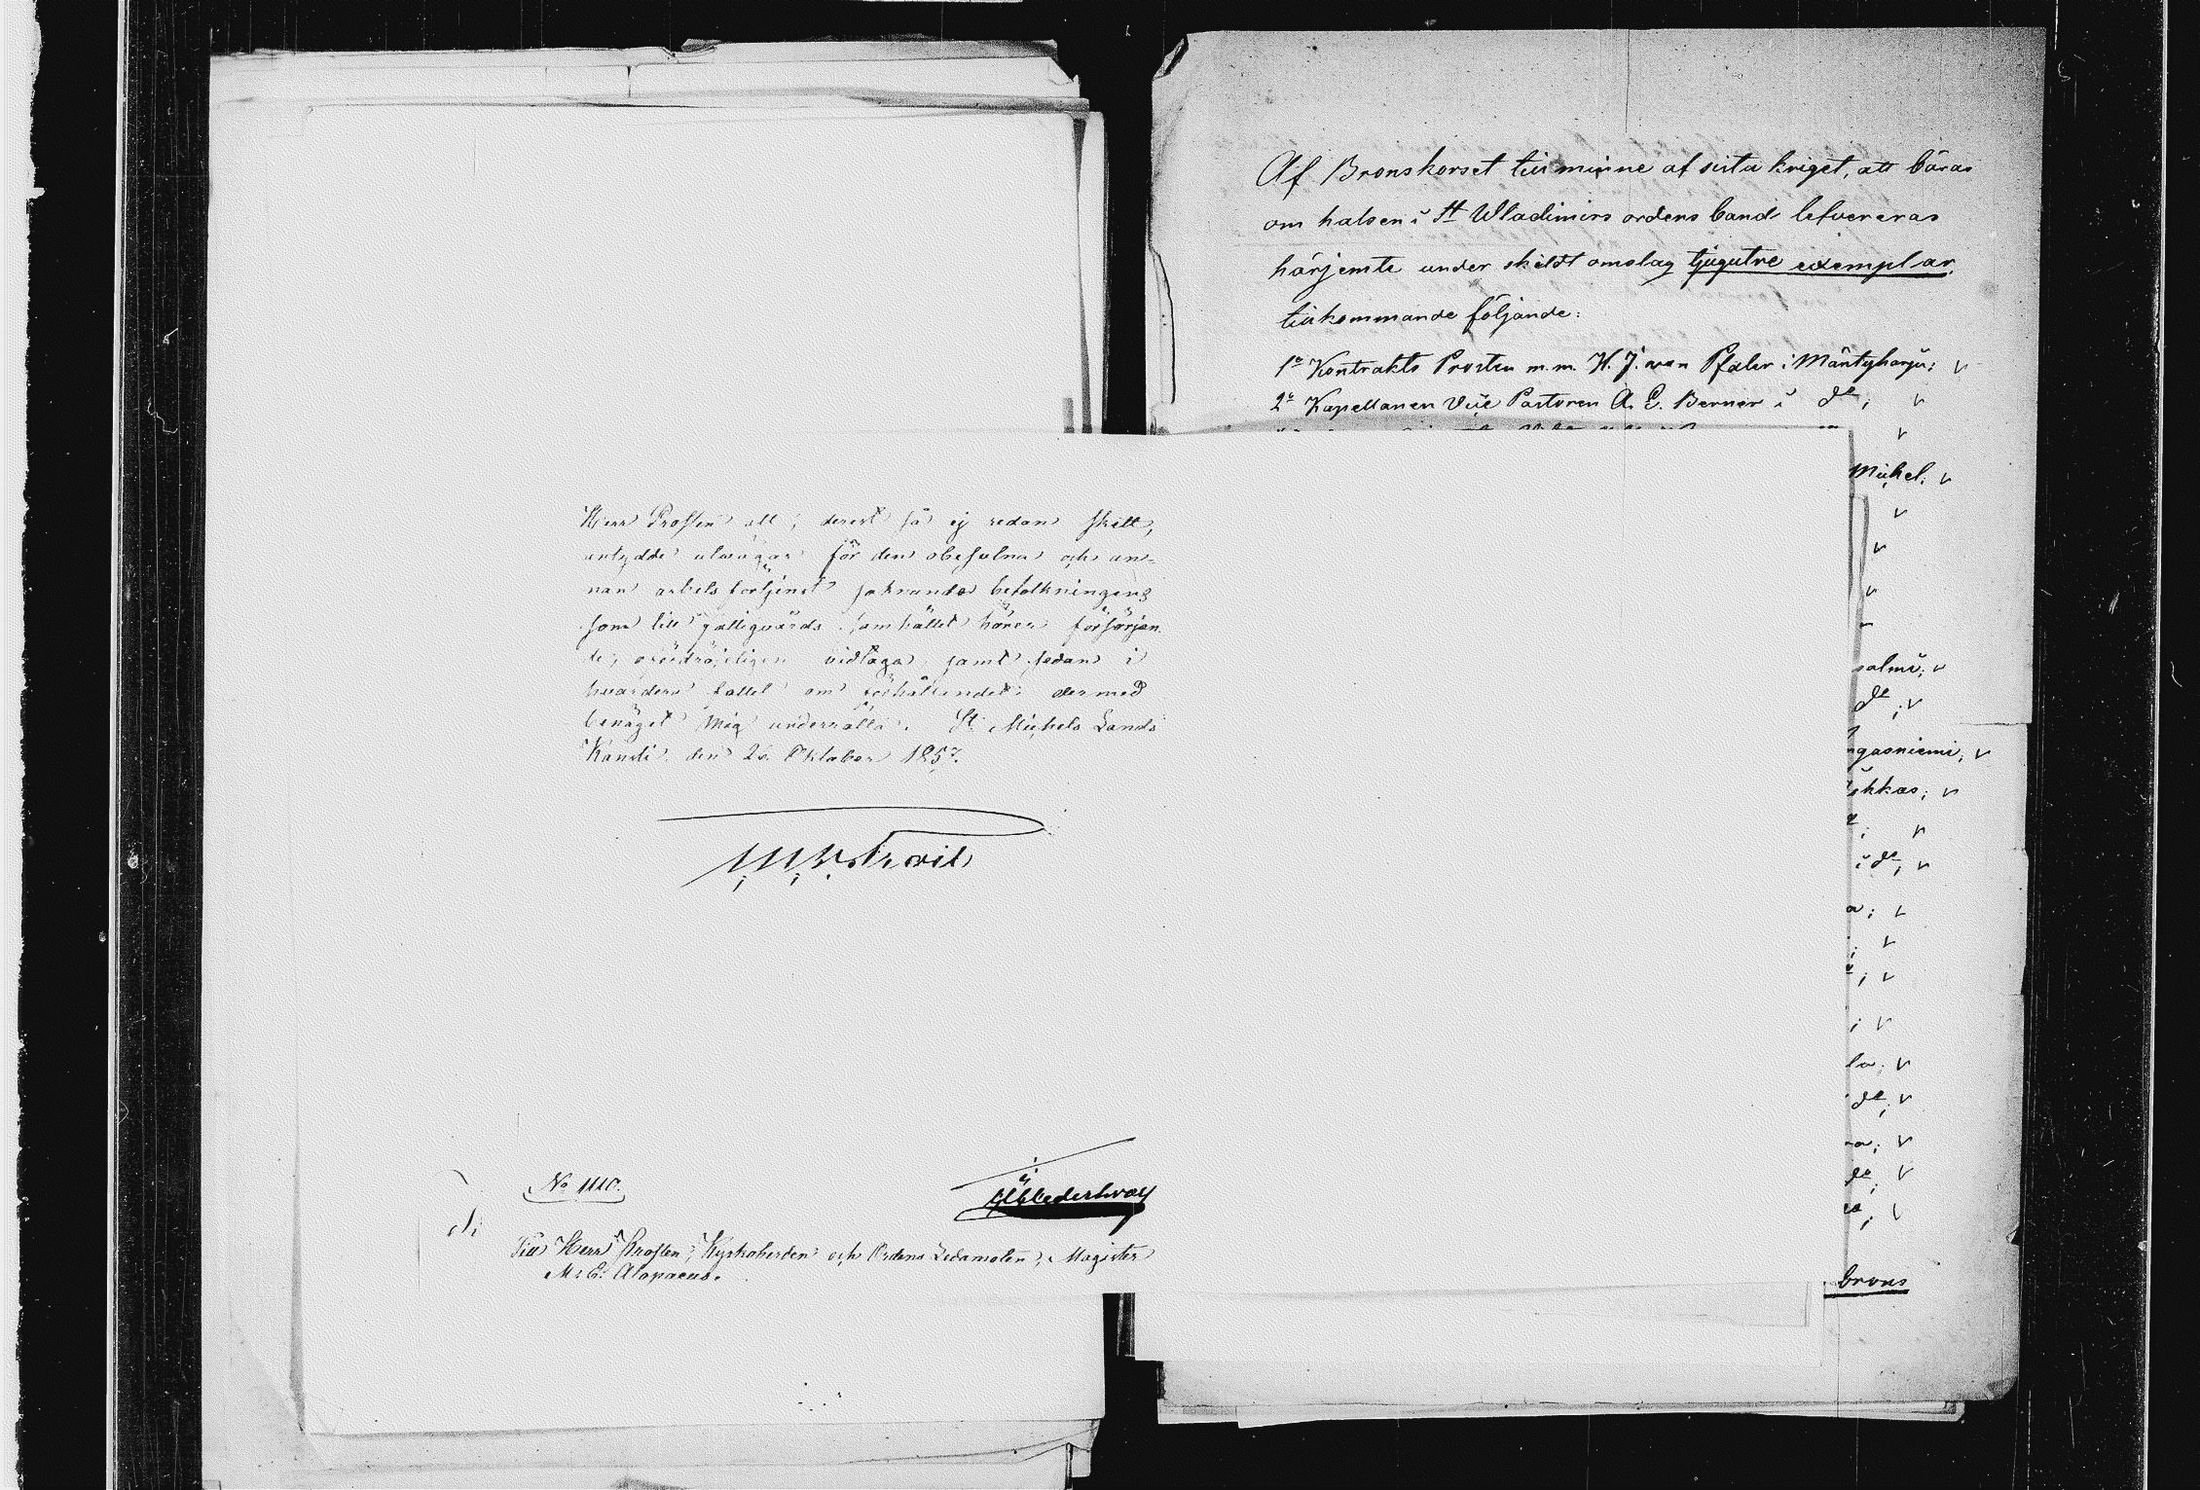 Herr Prosten att, derest så ej redan skett,
antydde utvägar för den obesutna och an-
nan arbetsförtjenst saknande befolkningens
som till gästgivards samhället hörer försörjan-
de, ofördröjeligen vidtaga, samt sedan i
hvardera fallet om förhållandet dermed
benäget mig underrätta. St. Michels Lands
Kansli den 20 Oktober 1857.
No 1110.
AGCederhvarf
Till Herr Prosten, Kyrkoherden och Ordens Ledamoten, Magister
M: E: Alopaeus.
Af Bronskorset till minne af sista kriget, att bäras
om halsen i St Wladimirs ordens band lefvereras
härjemte under skildt omslag tjugutre exemplar,
tillkommande följande:
1o Kontrakts Prosten m.m. H. J. von Pfaler i Mäntyharju; v
2o Kapellanen Vice Pastoren A. E. Berner i do; v
v
Michel; v
v
v
v
salmi; v
do; v
ngasniemi; v
ihkas; v
; v
i do; v
a; v
; v
; v
; v
la; v
do; v
ra; v
do; v
; v
brons